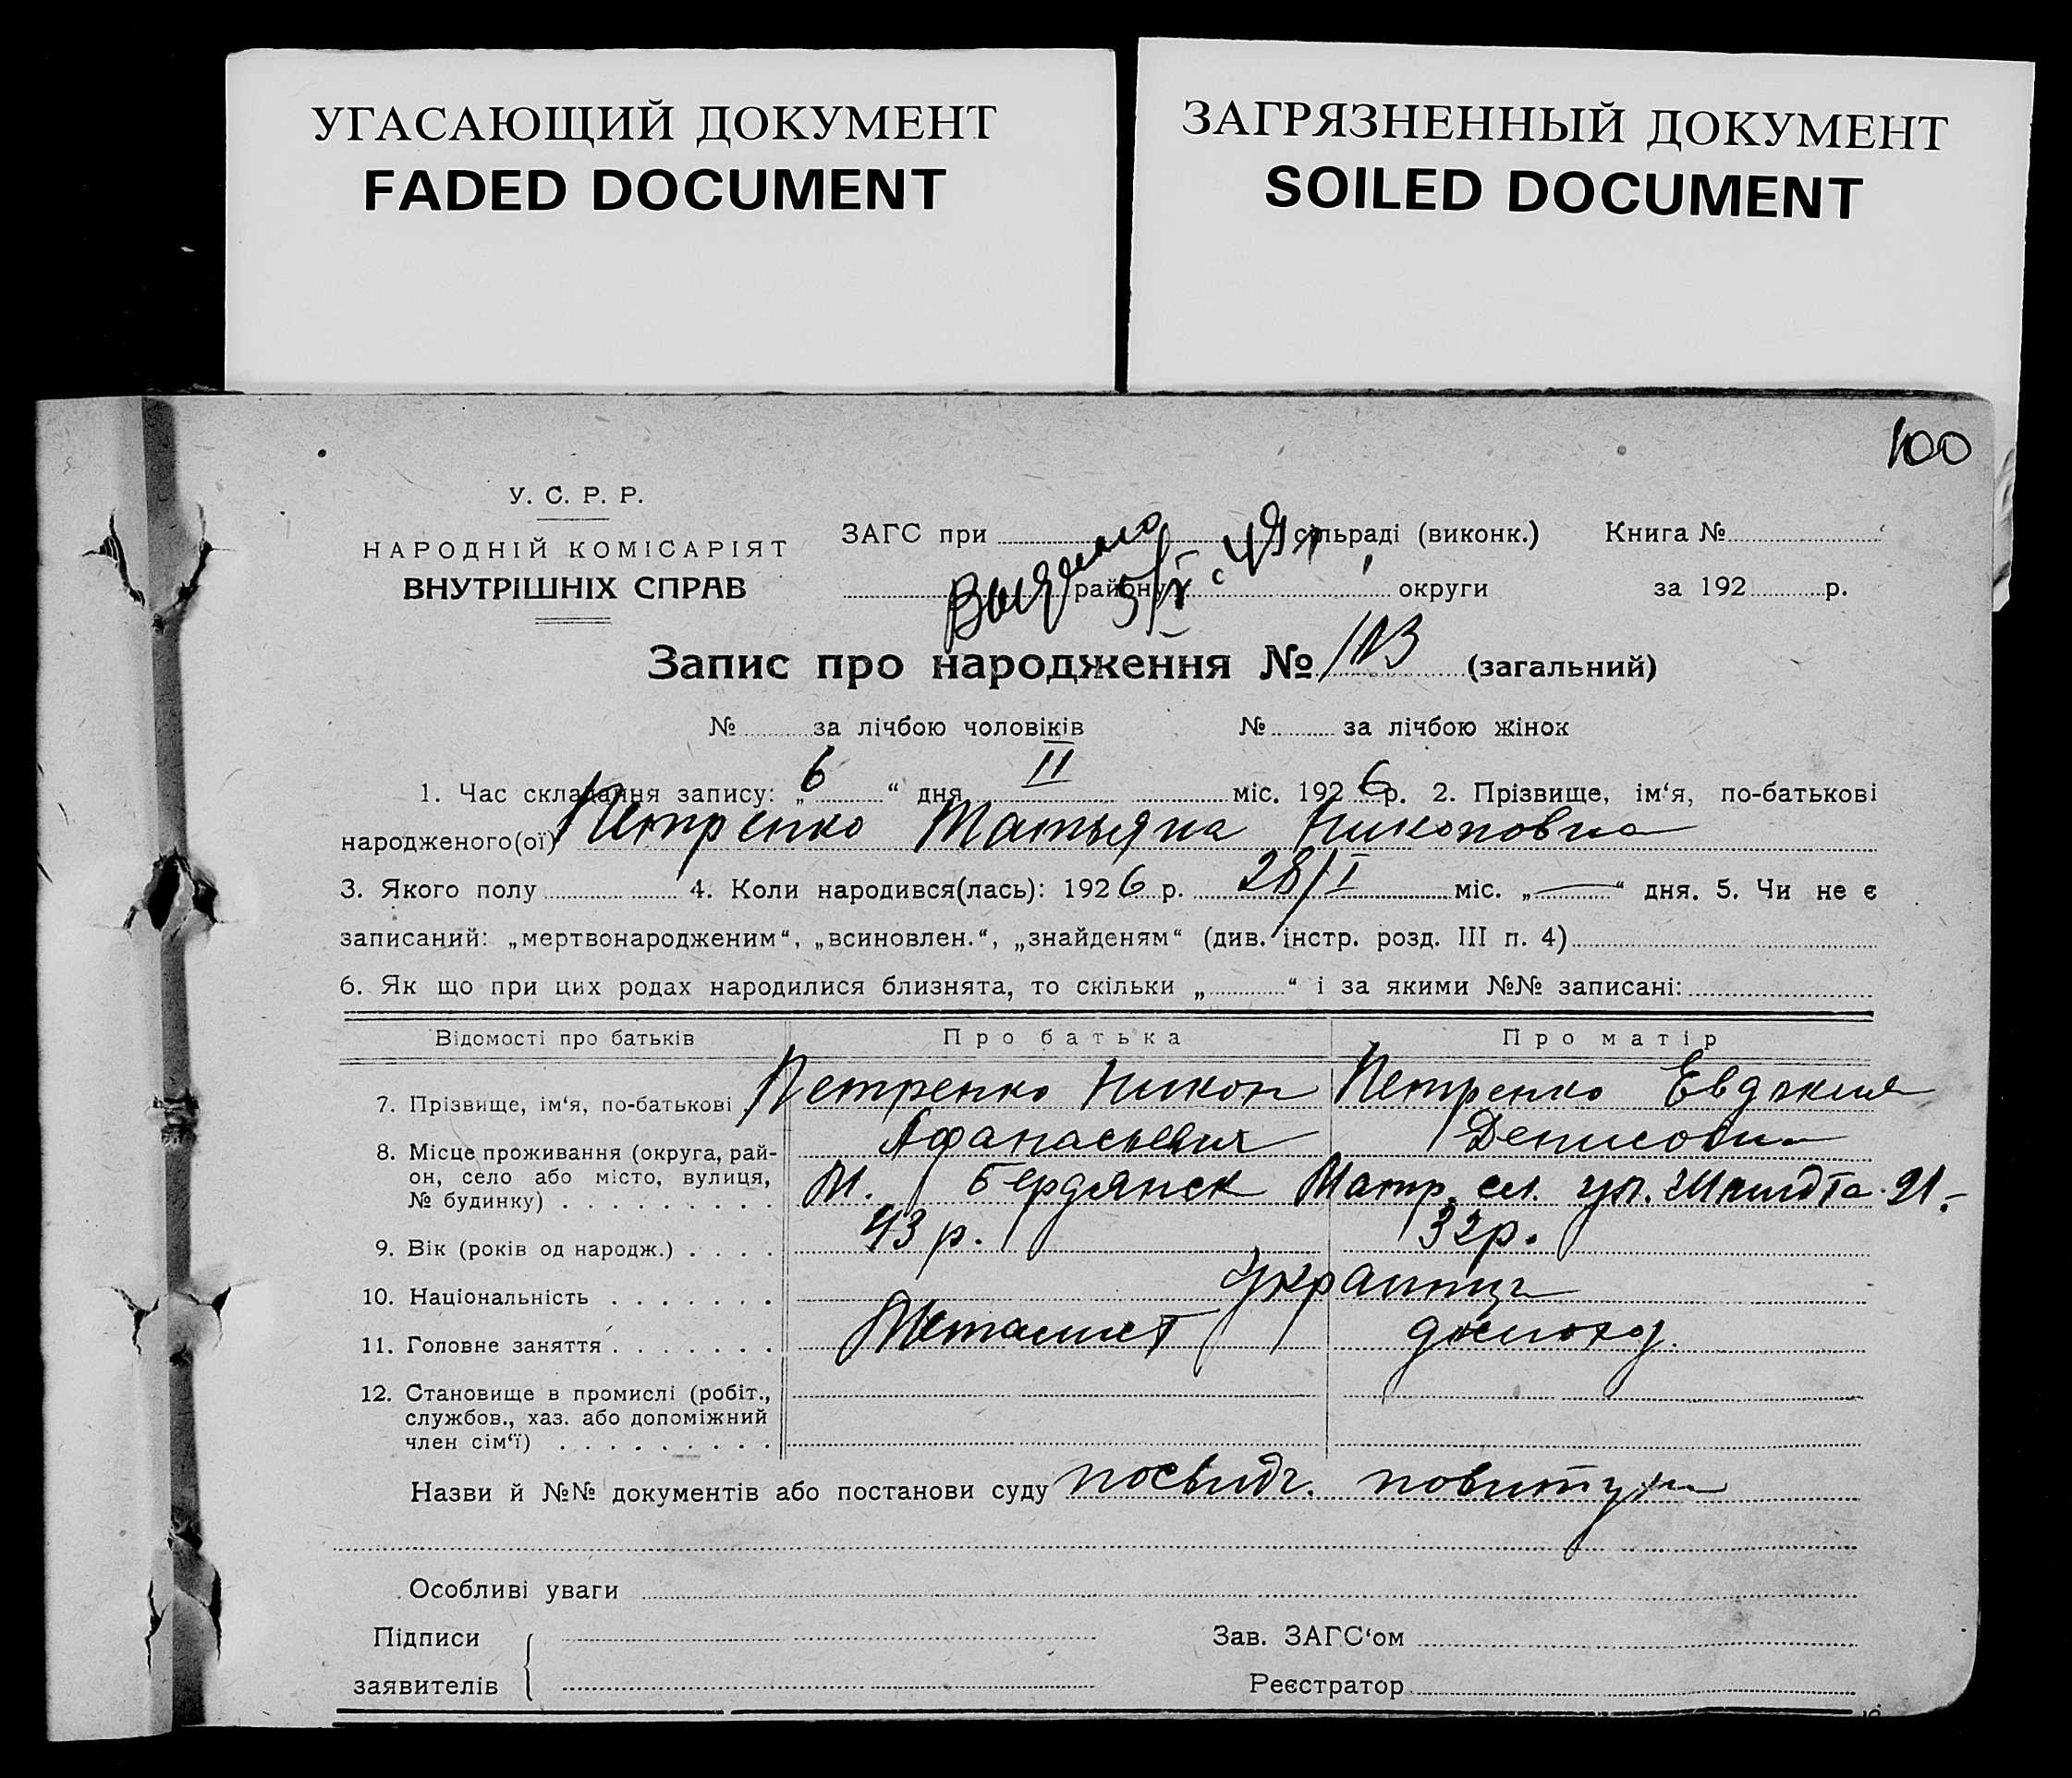 УГАСАЮЩИЙ ДОКУМЕНТ
FADED DOCUMENT
ЗАГРЯЗНЕННЫЙ ДОКУМЕНТ
SOILED DOCUMENT
100
У. С. Р. Р.
НАРОДНІЙ КОМІСАРІЯТ
ВНУТРІШНІХ СПРАВ
ЗАГС при сільраді (виконк.) Книга №
району округи за 192 р.
Запис про народження № (загальний)
№ за лічбою чоловіків № за лічбою жінок
1. Час складання запису: „ 6 “ дня II міс. 1926 р. 2. Прізвище, ім‘я, по-батькові
народженого(ої) Петренко Татьяна Никоновна
3. Якого полу 4. Коли народився(лась): 1926 р. 28/I міс. „—“ дня. 5. Чи не є
записаний: „мертвонародженим“, „всиновлен.“, „знайденям“ (див. інстр. розд. III п. 4)
6. Як що при цих родах народилися близнята, то скільки „ “ і за якими №№ записані:
Відомості про батьків Про батька Про матір
7. Прізвище, ім‘я, по-батькові Петренко Никон Петренко Евдокия
Афанасьевич Денисовна
8. Місце проживання (округа, рай-
он, село або місто, вулиця,
№ будинку) М. Бердянск Матр. сл. ул. Шмидта 21.-
9. Вік (років од народж.) 43 р. 32 р.
10. Національність украинцы
11. Головне заняття Металист домохоз.
12. Становище в промислі (робіт.,
службов., хаз. або допоміжний
член сім‘ї)
Назви й №№ документів або постанови суду посвидч. повитухи
Особливі уваги
Підписи
заявителів
Зав. ЗАГС‘ом
Реєстратор